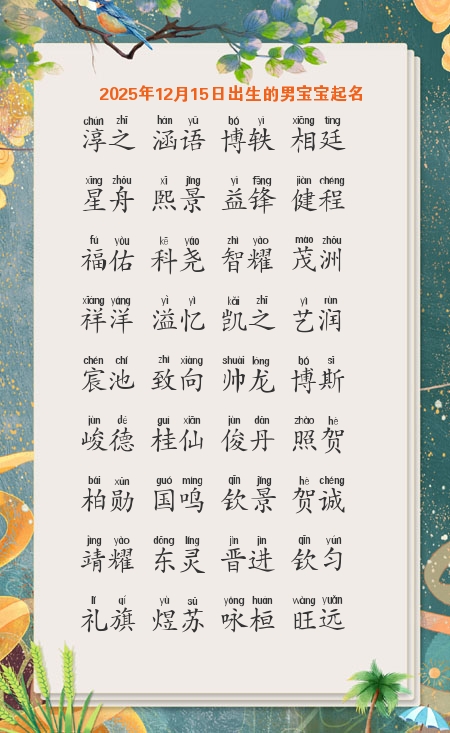 2025年12月15日出生的男宝宝起名
chún zhī hàn yǔ bó yì xiāng tíng
淳之 涵语 博轶 相廷
xīng zhōu xī jǐng yì fēng jiàn chéng
星舟 熙景 益锋 健程
fú yòu kē yáo zhì yào mào zhōu
福佑 科尧 智耀 茂洲
xiáng yáng yì yì kǎi zhī yì rùn
祥洋 溢忆 凯之 艺润
chén chí zhì xiàng shuài lóng bó sī
宸池 致向 帅龙 博斯
jùn dé guì xiān jùn dān zhào hè
峻德 桂仙 俊丹 照贺
bǎi xūn guó míng qīn jǐng hè chéng
柏勋 国鸣 钦景 贺诚
jìng yào dōng líng jìn jìn qīn yún
靖耀 东灵 晋进 钦匀
lǐ qí yù sū yǒng huán wàng yuǎn
礼旗 煜苏 咏桓 旺远